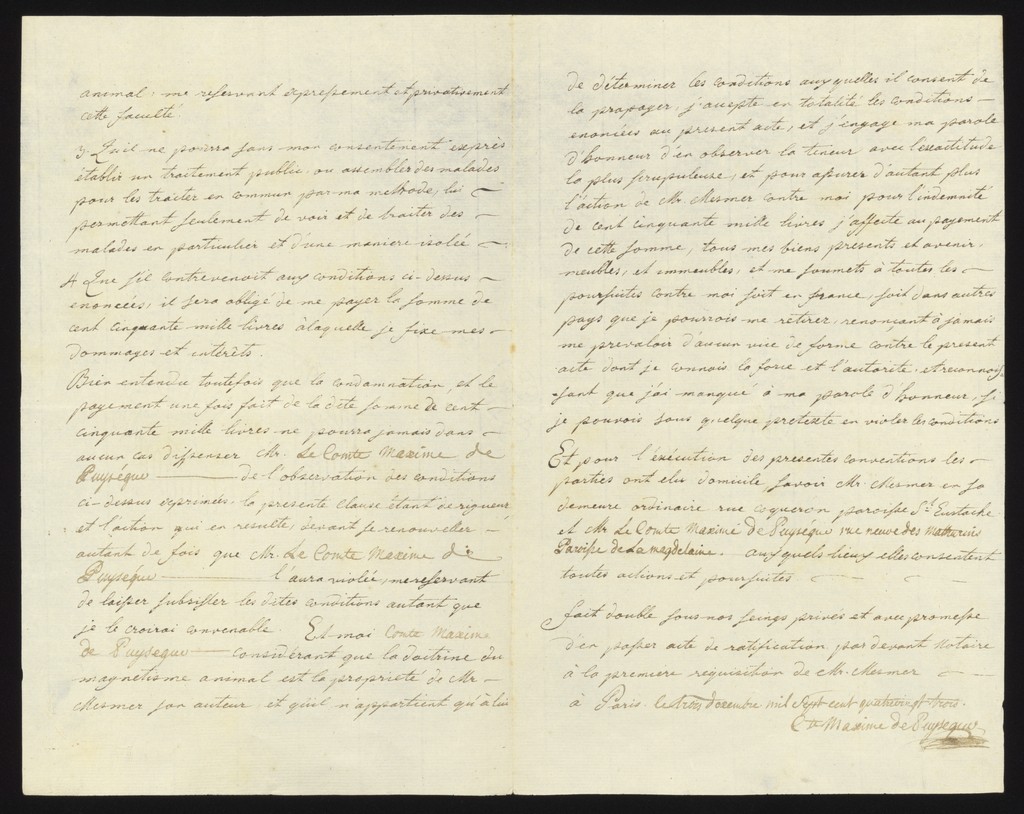 animal, me reservant expressement et privativement
cette faculté.
3. Qu'il ne pourra sans mon consentement exprès
établir un traitement public, ou assembler des malades
pour les traiter en commun par ma methode, lui
permettant seulement de voir et de traiter des
malades en particulier et d'une maniere isolée
4 Que s'il contrevenoit aux conditions ci-dessus
enoncées, il sera obligé de me payer la somme de
cent cinquante mille livres à laquelle je fixe mes
dommages et intérêts.
Bien entendu toutefois que la condamnation, et le
payement une fois fait de la dite somme de cent
cinquante mille livres ne pourra jamais dans
aucun cas dispenser Mr. Le Comte Maxime de
Puységur de l'observation des conditions
ci-dessus exprimées. la presente Clause étant de rigueur
et l'action qui en resulte, devant se renouveller
autant de fois que Mr. Le Comte Maxime de
Puysegur l'aura violée, me reservant
de laisser subsister les dites conditions autant que
je le croirai convenable. Et moi Comte Maxime
de Puysegur considérant que la doctrine du
magnetisme animal est la proprieté de Mr
Mesmer son auteur et qu'il n'appartient qu'à lui
de déterminer les conditions auxquelles il consent de
la propager, j'accepte en totalité les conditions
enoncées au present acte, et j'engage ma parole
d'honneur d'en observer la teneur avec l'exactitude
la plus scrupuleuse, et pour assurer d'autant plus
l'action de Mr. Mesmer contre moi pour l'indemnité
de cent cinquante mille livres j'affecte au payement
de cette somme, tous mes biens presents et avenir,
meubles, et immeubles, et me soumets à toutes les
poursuites contre moi soit en france, soit dans autres
pays que je pourrois me retirer, renonçant à jamais
me prevaloir d'aucun vice de forme contre le present
acte dont je connois la force et l'autorité, et reconnois
sant que j'ai manqué à ma parole d'honneur, si
je pouvois sous quelque pretexte en violer les conditions
Et pour l'exécution des presentes conventions les
parties ont elu domicile, savoir Mr. Mesmer en sa
demeure ordinaire rue coqueron paroisse St. Eustache
et Mr Le Comte Maxime de Puységur rue neuve des mathurins
Paroisse de La magdelaine. auxquels lieux elles consentent
toutes actions et poursuites
fait double sous nos seings privés et avec promesse
d'en passer acte de ratification par devant Notaire
à la premiere requisition de Mr. Mesmer
à Paris. le trois decembre mil sept cent quatrevingt trois.
Cte Maxime de Puysegur